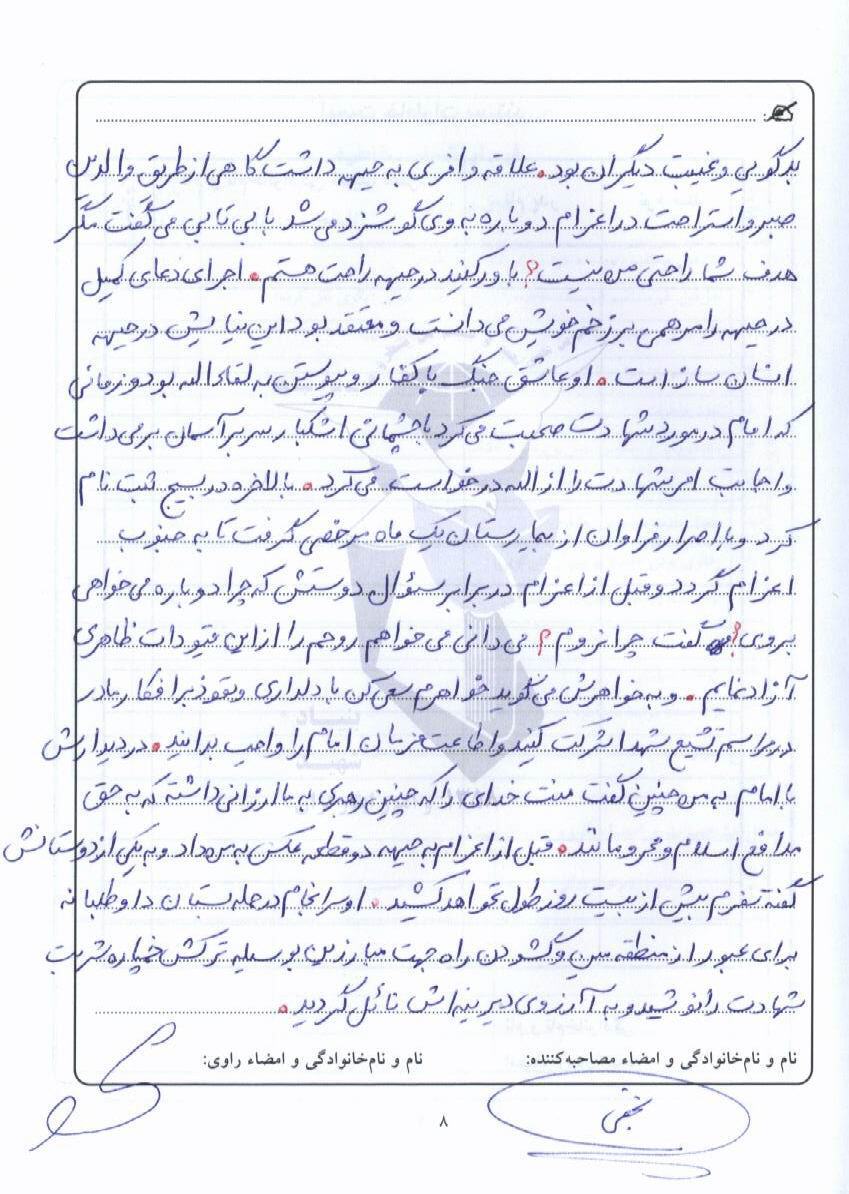 بدگویی و غیبت دیگران بود. علاقه وافری به جبهه داشت گاهی از طریق والدین
صبر و استراحت در اعزام دوباره به وی گوشزد می شد با بی تابی می گفت مگر
هدف شما راحتی من نیست؟ باور کنید در جبهه راحت هستم. اجرای دعای کمیل
در جبهه را مرهمی بر زخم خویش می دانست و معتقد بود این نیایش در جبهه
انسان ساز است. او عاشق جنگ با کفار و پیوستن به لقاءالله بود و زمانی
که امام در مورد شهادت صحبت می کرد با چشمانی اشکبار سر بر آسمان بر می داشت
و اجابت امر شهادت را از الله درخواست می کرد. بالاخره در بسیج ثبت نام
کرد و با اصرار فراوان از بیمارستان یک ماه مرخصی گرفت تا به جنوب
اعزام گردد و قبل از اعزام در برابر سئوال دوستش که چرا دوباره می خواهی
بروی؟ گفت چرا نروم؟ می دانی می خواهم روحم را از این قیودات ظاهری
آزاد نمایم. و به خواهرش می گوید خواهرم سعی کن با دلداری و نفوذ بر افکار مادر
در مراسم تشیع شهدا شرکت کنید و اطاعت فرمان امام را واجب بدانید. در دیدارش
با امام به من چنین گفت منت خدای را که چنین رهبری به ما ارزانی داشته که به حق
مدافع اسلام و محرومانند. قبل از اعزام به جبهه دو قطعه عکس به من داد و به یکی از دوستانش
گفته سفرم بیش از بیست روز طول نخواهد کشید. او سرانجام در حمله بستان داوطلبانه
برای عبور از منطقه مین و گشودن راه جهت مبارزین بوسیله ترکش خمپاره شربت
شهادت را نوشید و به آرزوی دیرینه اش نائل گردید.
نام و نام خانوادگی و امضاء مصاحبه کننده: نام و نام خانوادگی و امضاء راوی:
۸